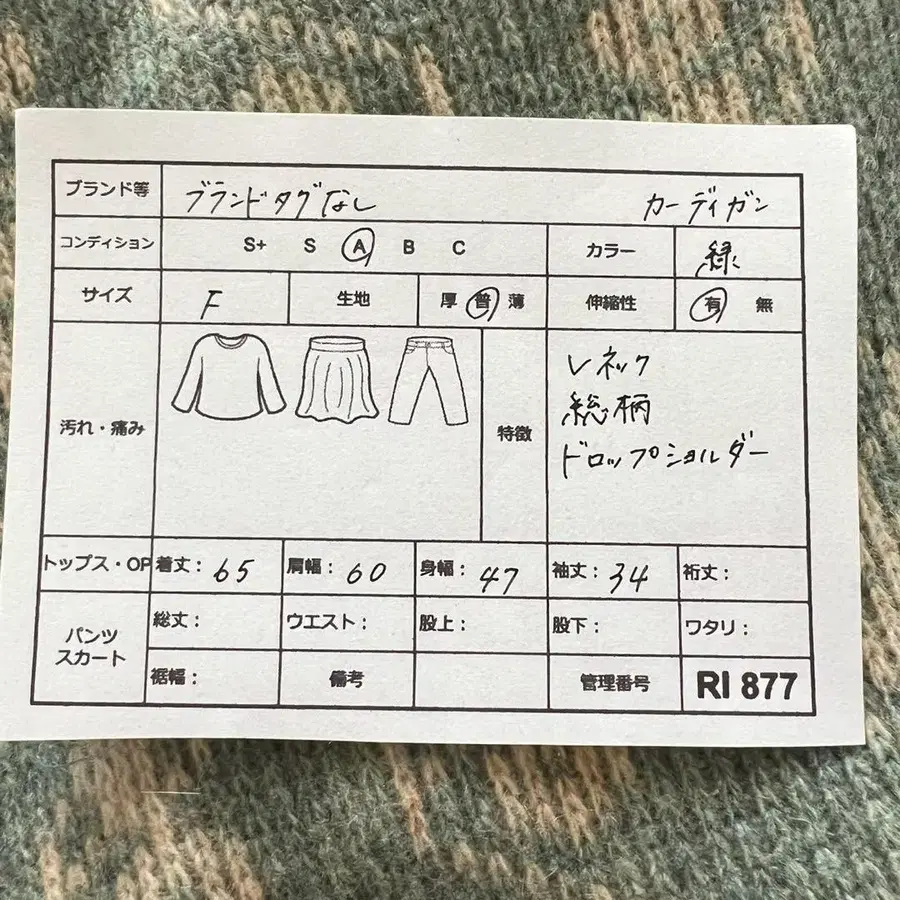 ブランド等 ブランドタグなし カーディガン
コンディション S+ S A B C カラー 緑
サイズ F 生地 厚 普 薄 伸縮性 有 無
汚れ・痛み 特徴
Vネック
総柄
ドロップショルダー
トップス・OP 着丈：65 肩幅：60 身幅：47 袖丈：34 裄丈：
パンツ
スカート
総丈： ウエスト： 股上： 股下： ワタリ：
裾幅： 備考 管理番号 RI 877